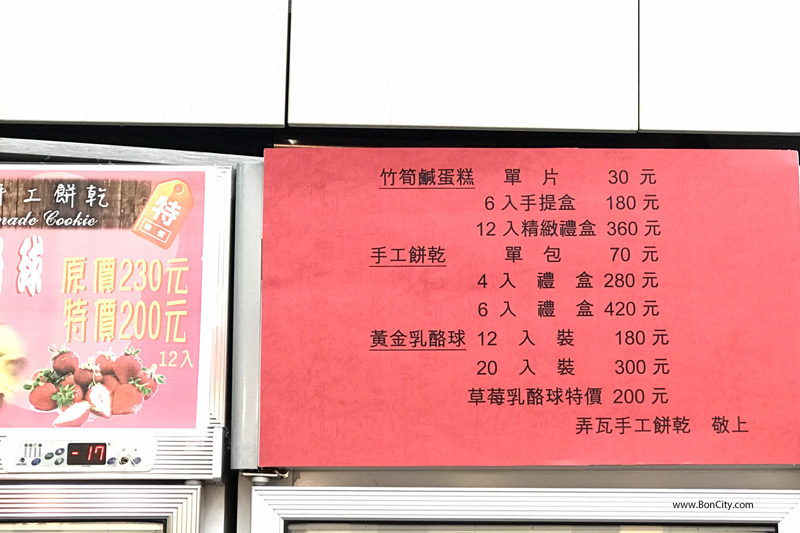 手工餅乾
made Cookie
特
特價
球
原價230元
特價200元
12入
-17
竹筍鹹蛋糕 單 片 30 元
6 入手提盒 180 元
12 入精緻禮盒 360 元
手工餅乾 單 包 70 元
4 入 禮 盒 280 元
6 入 禮 盒 420 元
黃金乳酪球 12 入 裝 180 元
20 入 裝 300 元
草莓乳酪球特價 200 元
弄瓦手工餅乾 敬上
www.BonCity.com